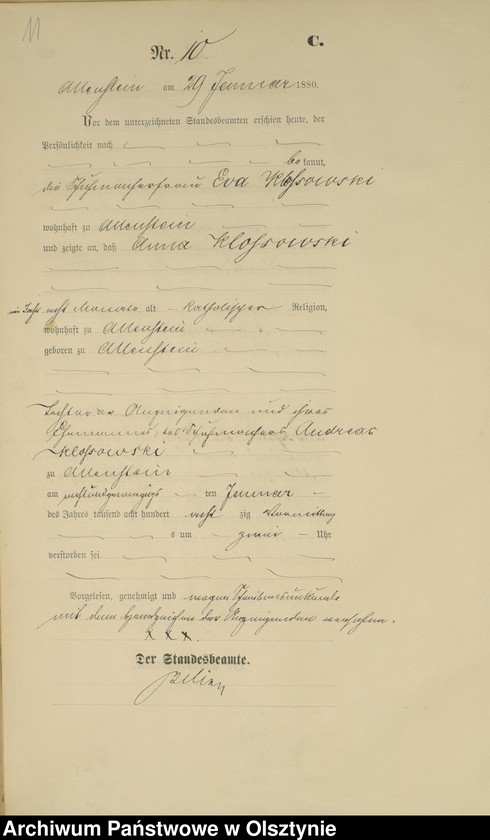 11
C.
Nr. 10
Allenstein am 29 Januar 1880.
Vor dem unterzeichneten Standesbeamten erschien heute, der
Persönlichkeit nach
bekannt,
die Schuhmacherfrau Eva Klossowski
wohnhaft zu Allenstein
und zeigte an, daß Anna Klossowski
ein Jahr acht Monate alt katholischer Religion,
wohnhaft zu Allenstein
geboren zu Allenstein
Tochter der Anzeigenden und ihres
Ehemannes, des Schuhmachers Andreas
Klossowski
zu Allenstein
am achtundzwanzigsten Januar
des Jahres tausend acht hundert achtzig Vormittag
s um zwei Uhr
verstorben sei
Vorgelesen, genehmigt und wegen Schreibensunkunde
mit dem Handzeichen der Anzeigenden versehen.
x x x.
Der Standesbeamte.
Archiwum Państwowe w Olsztynie